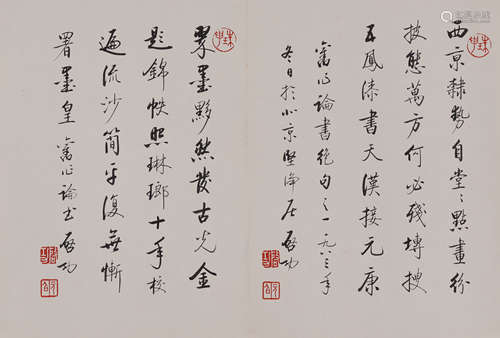 西京隸勢自堂堂點畫紛
披態萬方何必殘塼搜
五鳳漆書天漢接元康
舊作論書絕句之一一九八三年
冬日於北京堅淨居啓功
翠墨黟然發古光金
題錦帙照琳瑯十年校
遍流沙簡平復無慚
署墨皇舊作論書啓功